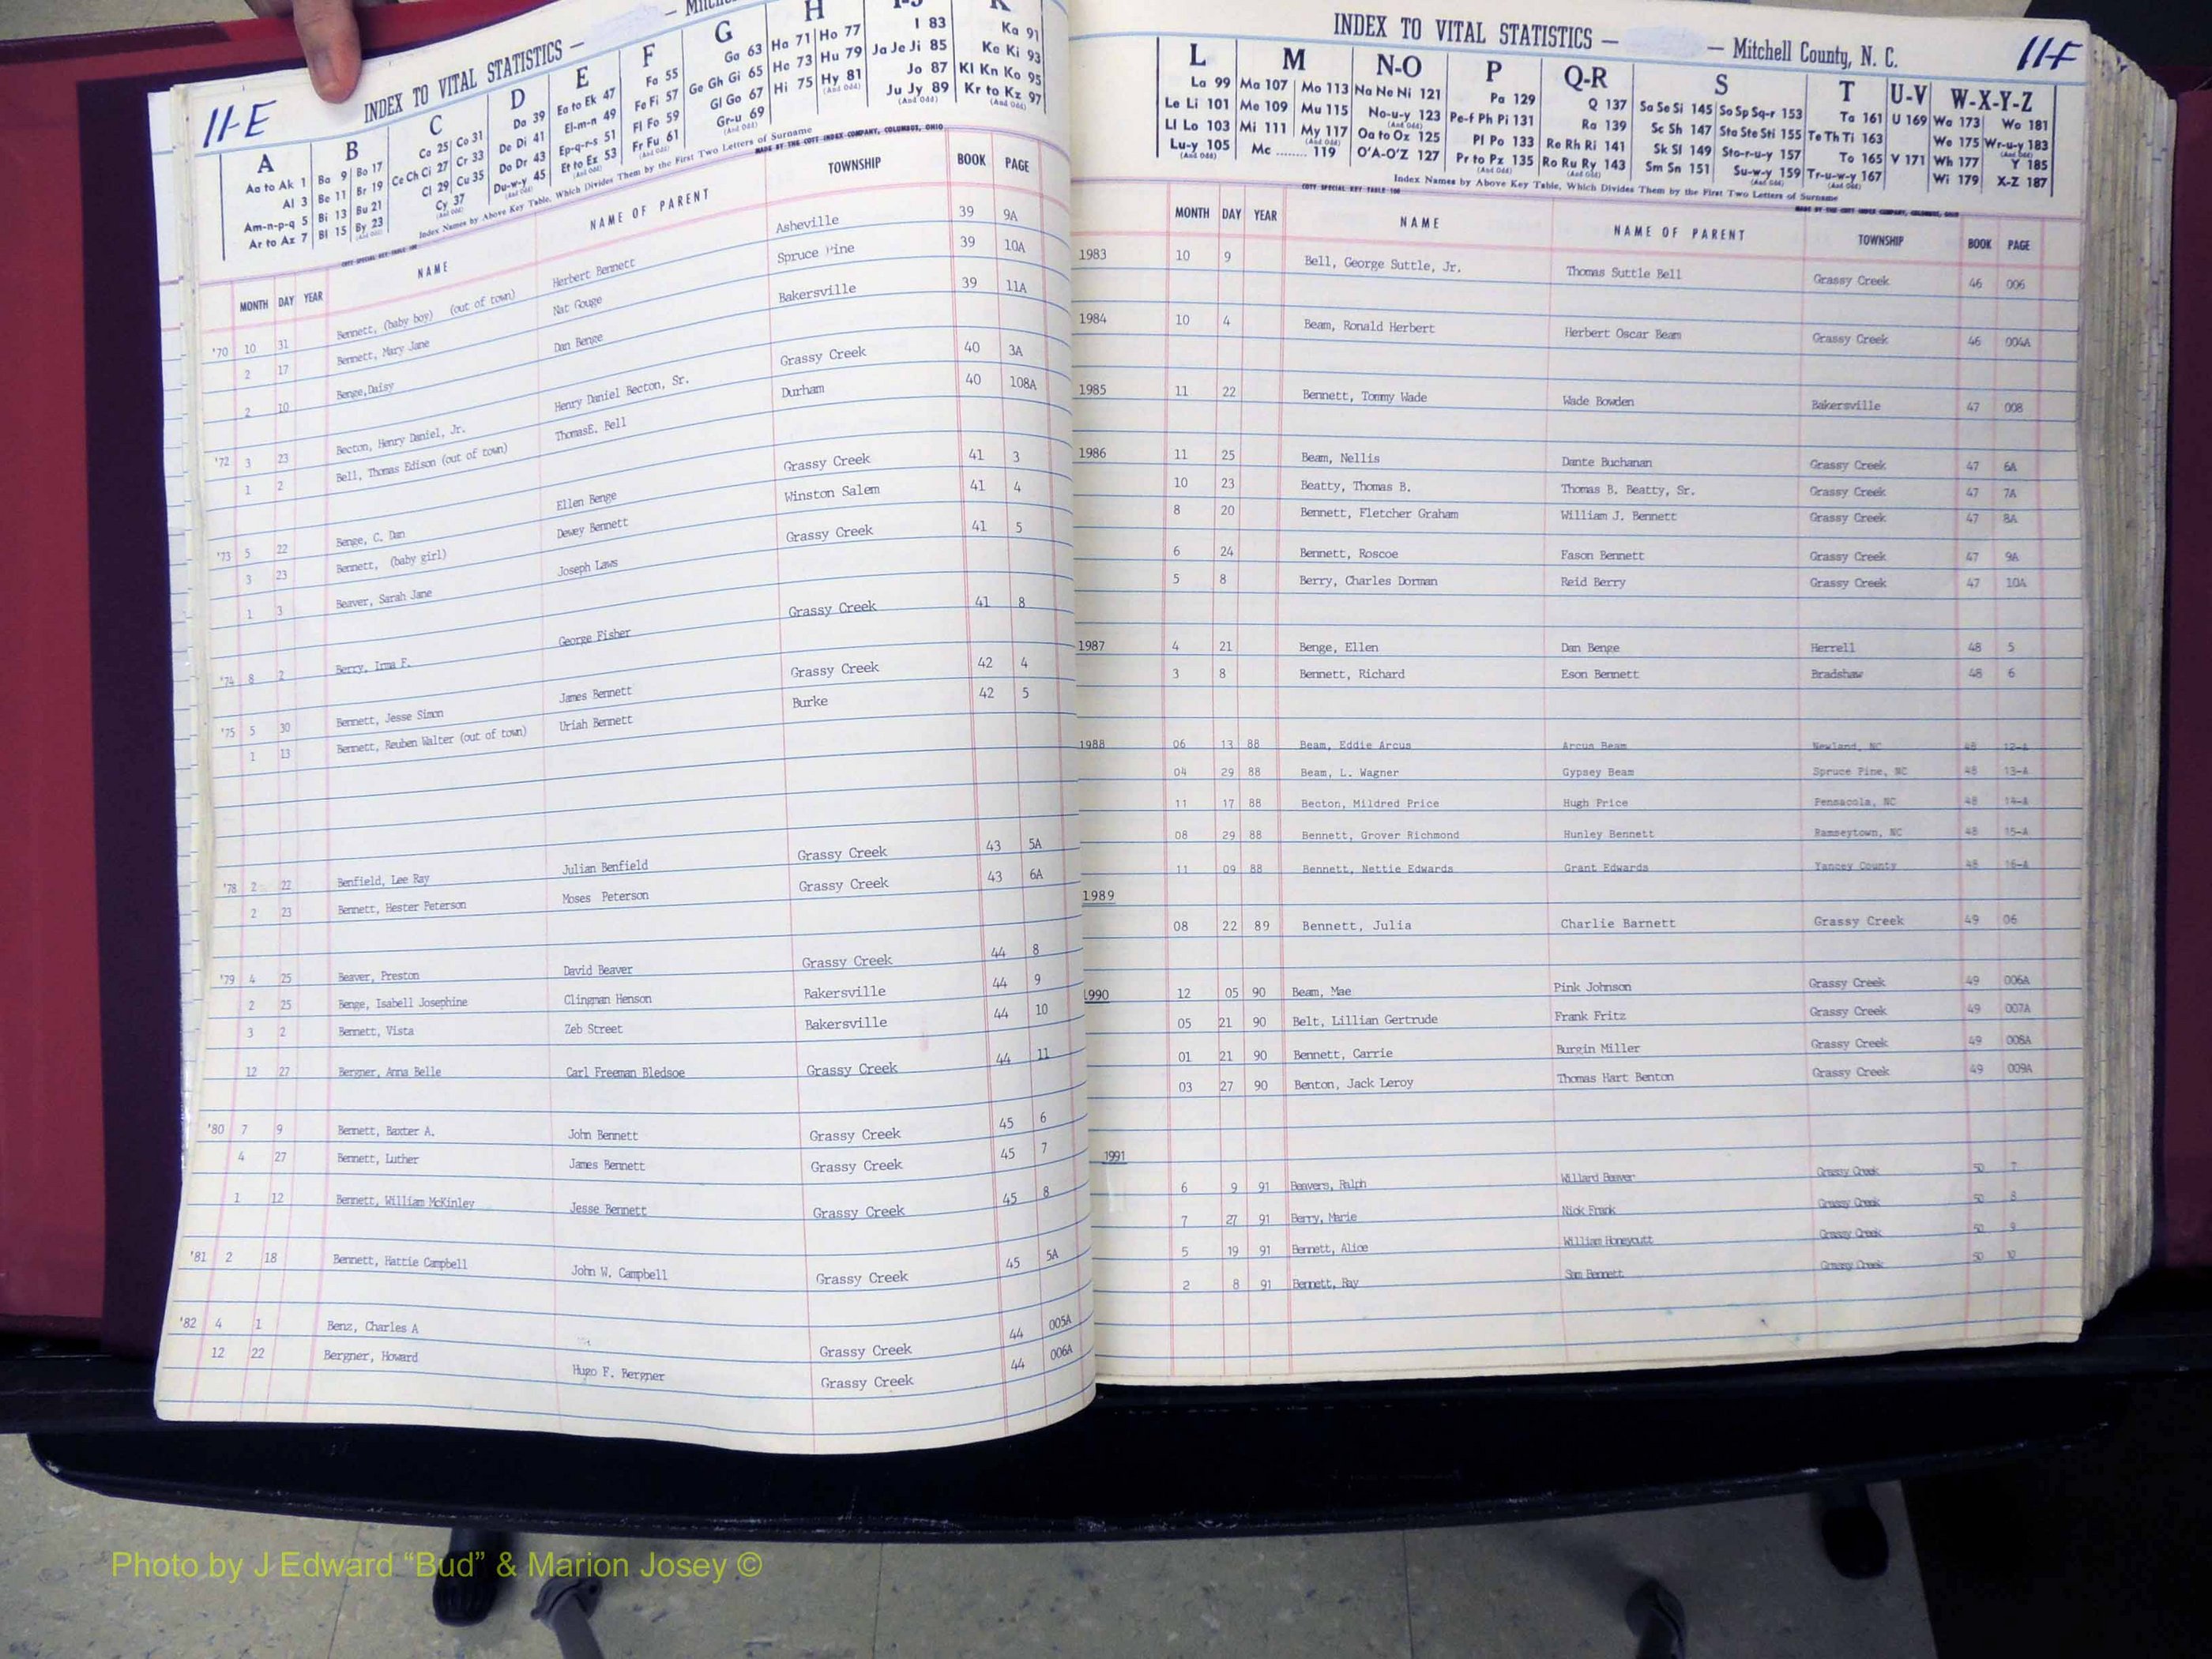 11-E
INDEX TO VITAL STATISTICS —
A B C D E F G H K
Aa to Ak 1
Al 3
Am-n-p-q 5
Ar to Az 7
Ba 9 Bo 17
Be 11 Br 19
Bi 13 Bu 21
Bl 15 By 23
Ca 25 Co 31
Ce Ch Ci 27 Cr 33
Cl 29 Cu 35
Cy 37
Da 39
De Di 41
Do Dr 43
Du-w-y 45
Ea to Ek 47
El-m-n 49
Ep-q-r-s 51
Et to Ez 53
Fa 55
Fe Fi 57
Fl Fo 59
Fr Fu 61
Ga 63
Ge Gh Gi 65
Gl Go 67
Gr-u 69
Ha 71 Ho 77
He 73 Hu 79
Hi 75 Hy 81
I 83
Ja Je Ji 85
Jo 87
Ju Jy 89
Ka 91
Ke Ki 93
Kl Kn Ko 95
Kr to Kz 97
Index Names by Above Key Table, Which Divides Them by the First Two Letters of Surname
MADE BY THE COTT INDEX COMPANY, COLUMBUS, OHIO
MONTH DAY YEAR NAME NAME OF PARENT TOWNSHIP BOOK PAGE
'70 10 31 Bennett, (baby boy) (out of town) Herbert Bennett Asheville 39 9A
2 17 Bennett, Mary Jane Nat Gouge Spruce Pine 39 10A
2 10 Benge,Daisy Dan Benge Bakersville 39 11A
'72 3 23 Becton, Henry Daniel, Jr. Henry Daniel Becton, Sr. Grassy Creek 40 3A
1 2 Bell, Thomas Edison (out of town) ThomasE. Bell Durham 40 108A
'73 5 22 Benge, C. Dan Ellen Benge Grassy Creek 41 3
3 23 Bennett, (baby girl) Dewey Bennett Winston Salem 41 4
1 3 Beaver, Sarah Jane Joseph Laws Grassy Creek 41 5
'74 8 2 Berry, Irma F. George Fisher Grassy Creek 41 8
'75 5 30 Bennett, Jesse Simon James Bennett Grassy Creek 42 4
1 13 Bennett, Reuben Walter (out of town) Uriah Bennett Burke 42 5
'78 2 22 Benfield, Lee Ray Julian Benfield Grassy Creek 43 5A
2 23 Bennett, Hester Peterson Moses Peterson Grassy Creek 43 6A
'79 4 25 Beaver, Preston David Beaver Grassy Creek 44 8
2 25 Benge, Isabell Josephine Clingman Henson Bakersville 44 9
3 2 Bennett, Vista Zeb Street Bakersville 44 10
12 27 Bergner, Anna Belle Carl Freeman Bledsoe Grassy Creek 44 11
'80 7 9 Bennett, Baxter A. John Bennett Grassy Creek 45 6
4 27 Bennett, Luther James Bennett Grassy Creek 45 7
1 12 Bennett, William McKinley Jesse Bennett Grassy Creek 45 8
'81 2 18 Bennett, Hattie Campbell John W. Campbell Grassy Creek 45 5A
'82 4 1 Benz, Charles A Grassy Creek 44 005A
12 22 Bergner, Howard Hugo F. Bergner Grassy Creek 44 006A
INDEX TO VITAL STATISTICS — — Mitchell County, N. C.
11-F
L M N-O P Q-R S T U-V W-X-Y-Z
La 99
Le Li 101
Ll Lo 103
Lu-y 105
Ma 107 Mo 113
Me 109 Mu 115
Mi 111 My 117
Mc ........ 119
Na Ne Ni 121
No-u-y 123
Oa to Oz 125
O'A-O'Z 127
Pa 129
Pe-f Ph Pi 131
Pl Po 133
Pr to Pz 135
Q 137
Ra 139
Re Rh Ri 141
Ro Ru Ry 143
Sa Se Si 145 So Sp Sq-r 153
Sc Sh 147 Sta Ste Sti 155
Sk Sl 149 Sto-r-u-y 157
Sm Sn 151 Su-w-y 159
Ta 161
Te Th Ti 163
To 165
Tr-u-w-y 167
U 169
V 171
Wa 173 Wo 181
We 175 Wr-u-y 183
Wh 177 Y 185
Wi 179 X-Z 187
Index Names by Above Key Table, Which Divides Them by the First Two Letters of Surname
MONTH DAY YEAR NAME NAME OF PARENT TOWNSHIP BOOK PAGE
1983 10 9 Bell, George Suttle, Jr. Thomas Suttle Bell Grassy Creek 46 006
1984 10 4 Beam, Ronald Herbert Herbert Oscar Beam Grassy Creek 46 004A
1985 11 22 Bennett, Tommy Wade Wade Bowden Bakersville 47 008
1986 11 25 Beam, Nellis Dante Buchanan Grassy Creek 47 6A
10 23 Beatty, Thomas B. Thomas B. Beatty, Sr. Grassy Creek 47 7A
8 20 Bennett, Fletcher Graham William J. Bennett Grassy Creek 47 8A
6 24 Bennett, Roscoe Fason Bennett Grassy Creek 47 9A
5 8 Berry, Charles Dorman Reid Berry Grassy Creek 47 10A
1987 4 21 Benge, Ellen Dan Benge Herrell 48 5
3 8 Bennett, Richard Eson Bennett Bradshaw 48 6
1988 06 13 88 Beam, Eddie Arcus Arcus Beam Newland, NC 48 12-A
04 29 88 Beam, L. Wagner Gypsey Beam Spruce Pine, NC 48 13-A
11 17 88 Becton, Mildred Price Hugh Price Pensacola, NC 48 14-A
08 29 88 Bennett, Grover Richmond Hunley Bennett Ramseytown, NC 48 15-A
11 09 88 Bennett, Nettie Edwards Grant Edwards Yancey County 48 16-A
1989
08 22 89 Bennett, Julia Charlie Barnett Grassy Creek 49 06
1990 12 05 90 Beam, Mae Pink Johnson Grassy Creek 49 006A
05 21 90 Belt, Lillian Gertrude Frank Fritz Grassy Creek 49 007A
01 21 90 Bennett, Carrie Burgin Miller Grassy Creek 49 008A
03 27 90 Benton, Jack Leroy Thomas Hart Benton Grassy Creek 49 009A
1991
6 9 91 Beavers, Ralph Willard Beaver Grassy Creek 50 7
7 27 91 Berry, Marie Nick Frank Grassy Creek 50 8
5 19 91 Bennett, Alice William Honeycutt Grassy Creek 50 9
2 8 91 Bennett, Ray Sam Bennett Grassy Creek 50 10
Photo by J Edward “Bud” & Marion Josey ©